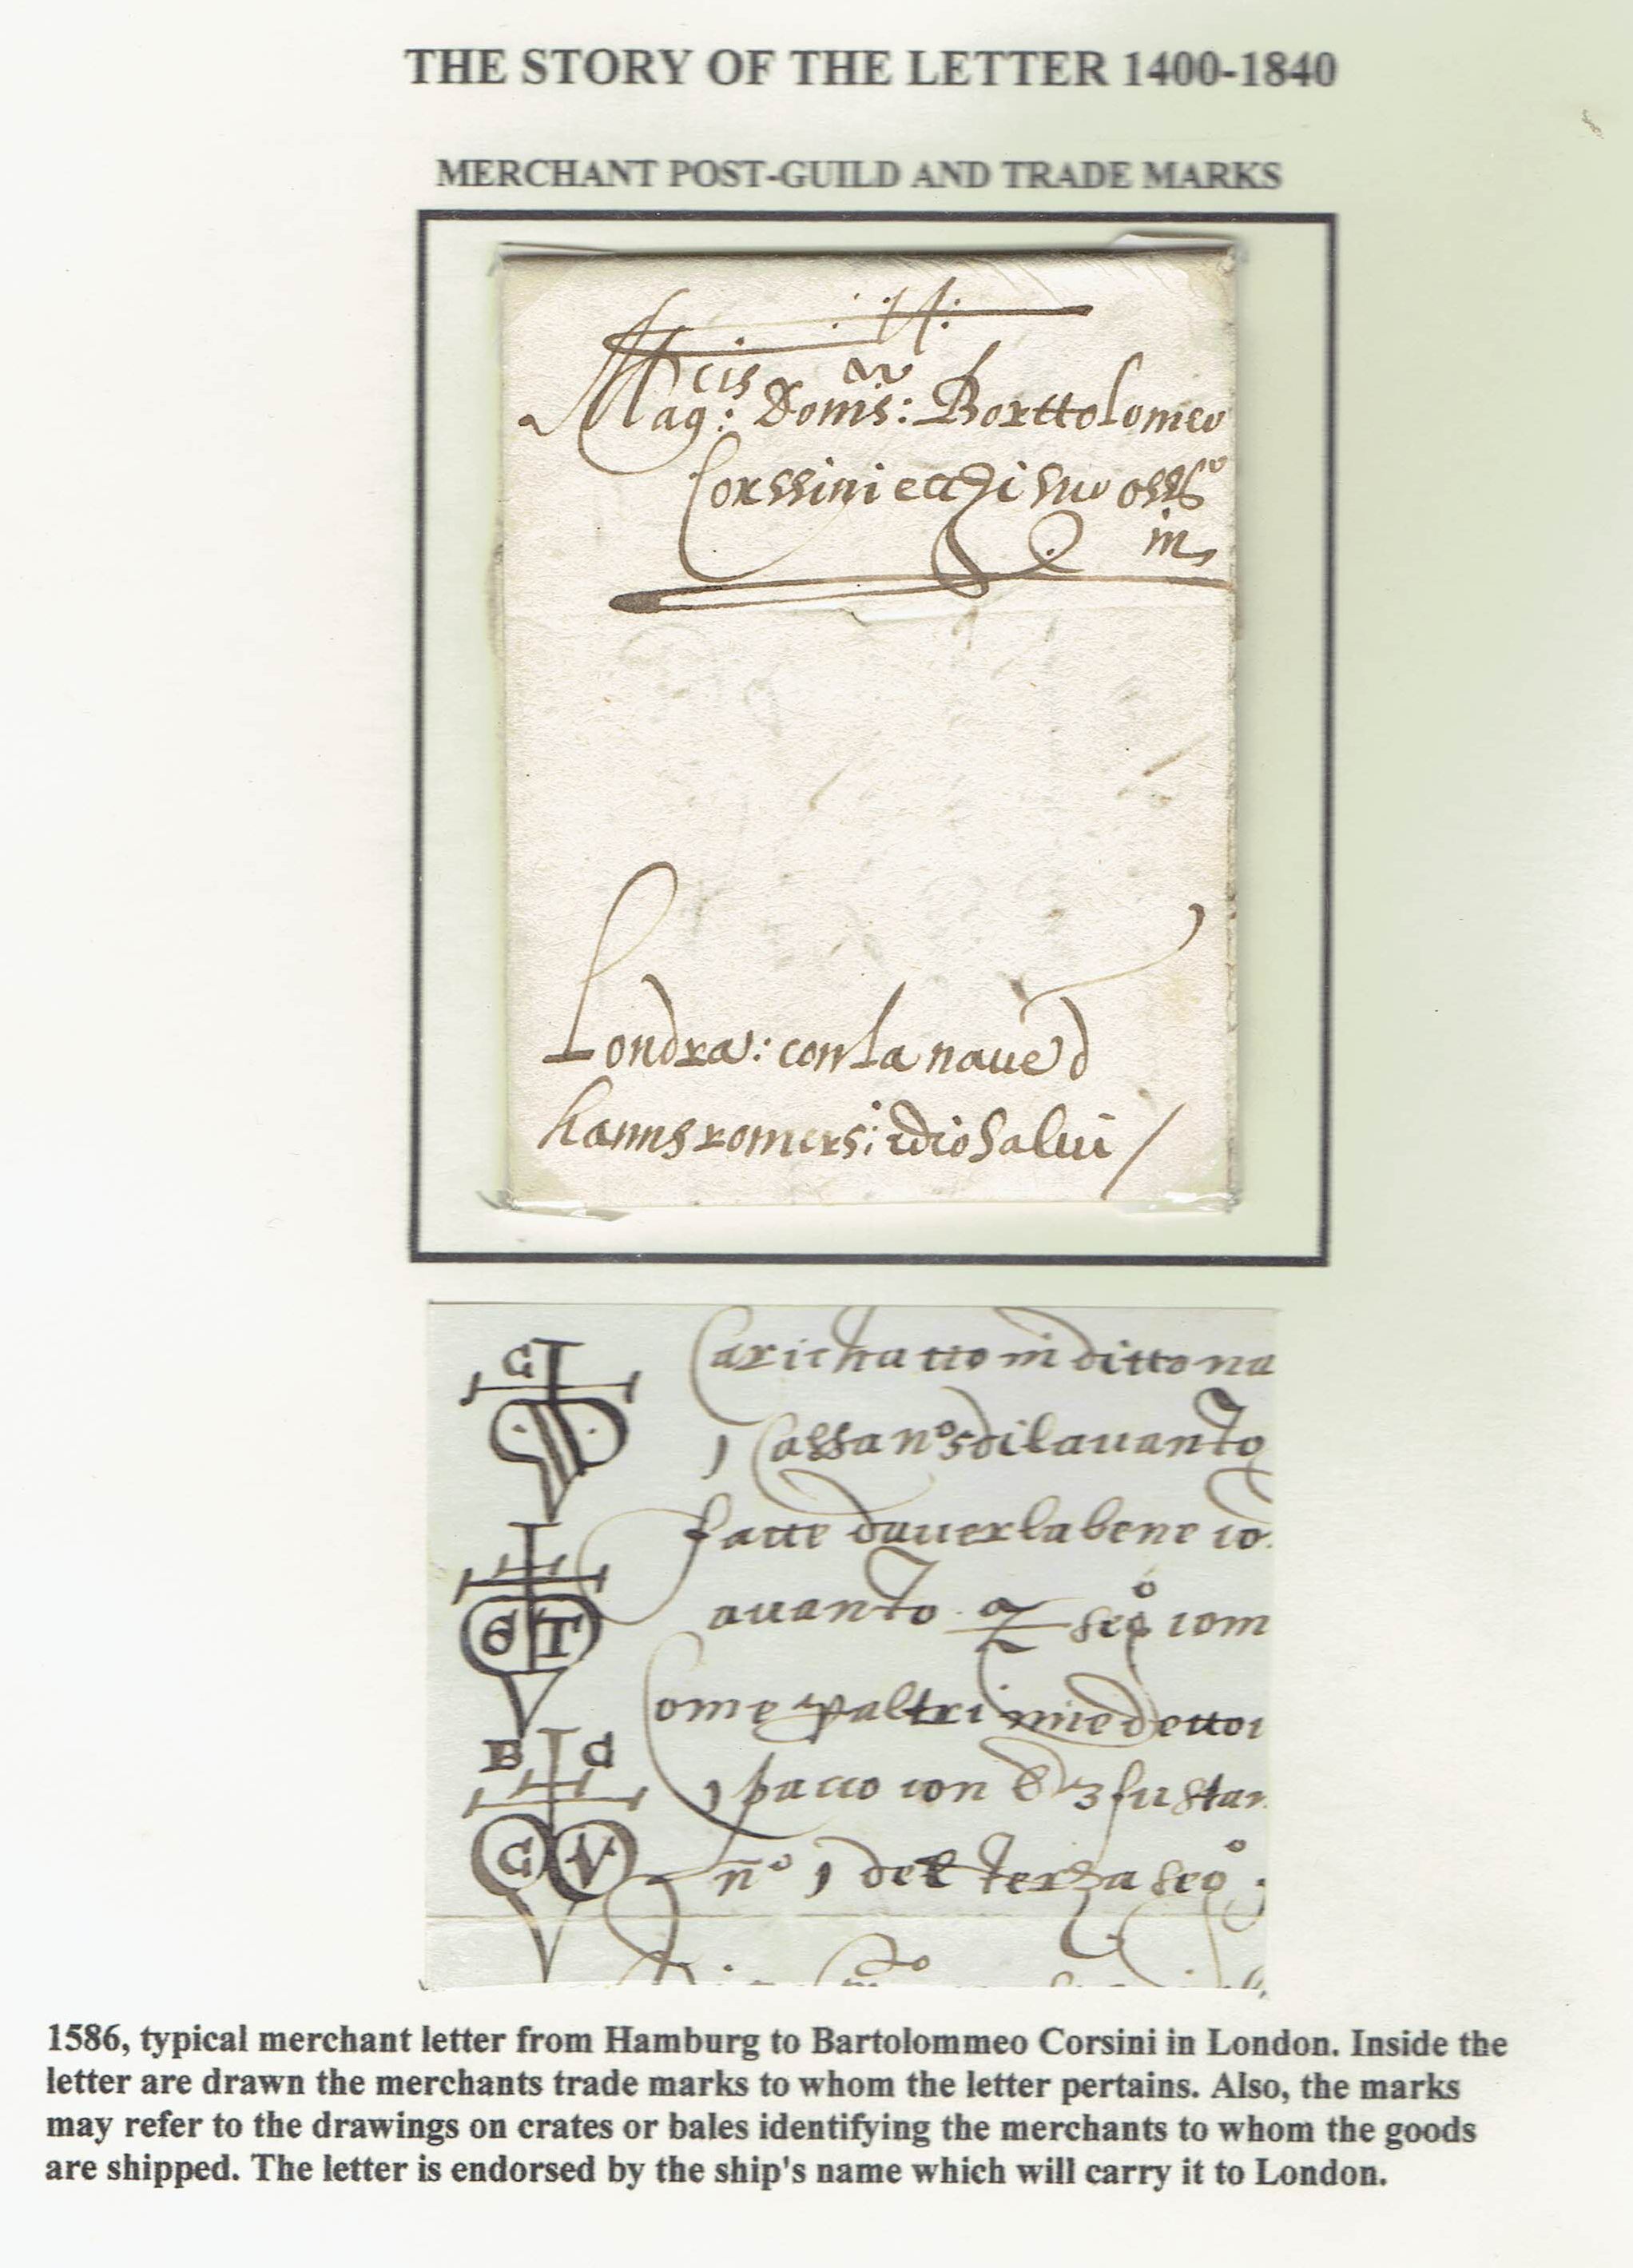 THE STORY OF THE LETTER 1400-1840
MERCHANT POST-GUILD AND TRADE MARKS
Mag:cis Domis: Borttolomeo
Corssini
in
Londra: con la naue d
hanns romers: idio salui /
G
Carichatto in ditto na
1 Cassa no 5 di lauanto
fatte dauerla bene
auanto
G T
Come altri mie detto
B C
1 pacco con fustan
G V
no 1 del terza
1586, typical merchant letter from Hamburg to Bartolommeo Corsini in London. Inside the
letter are drawn the merchants trade marks to whom the letter pertains. Also, the marks
may refer to the drawings on crates or bales identifying the merchants to whom the goods
are shipped. The letter is endorsed by the ship's name which will carry it to London.